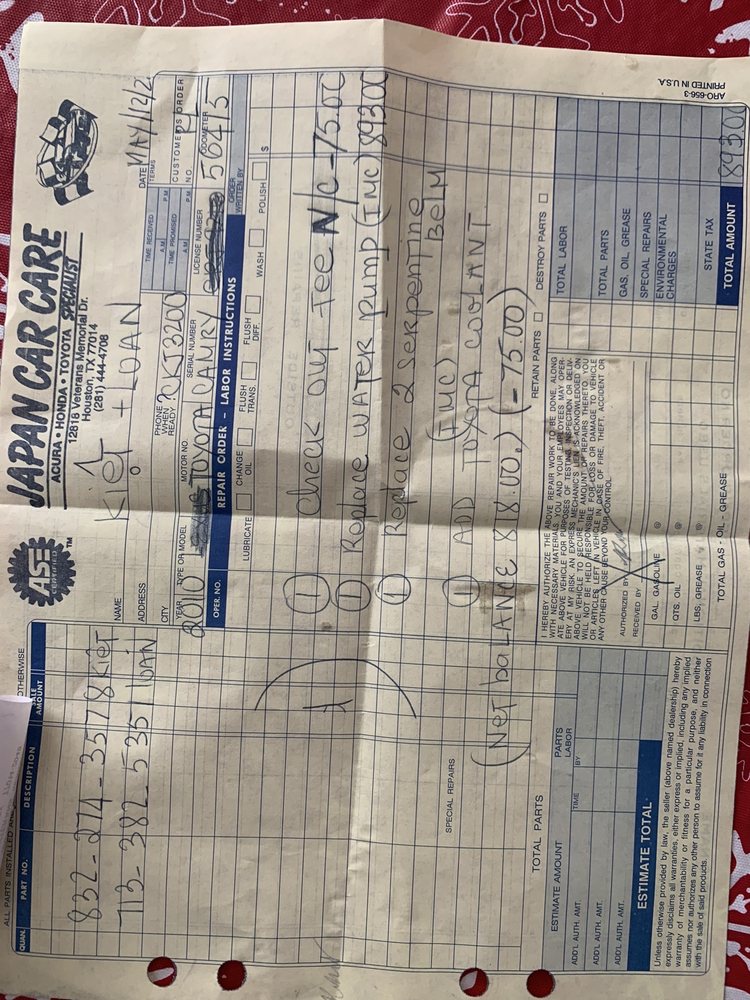 JAPAN CAR CARE
ACURA • HONDA • TOYOTA SPECIALIST
12818 Veterans Memorial Dr.
Houston, TX 77014
(281) 444-4708
ASE CERTIFIED TM
ALL PARTS INSTALLED
OTHERWISE
QUAN. PART NO. DESCRIPTION SALE AMOUNT
832-274-3578 Kiệt
713-382-5351 LOAN
NAME Kiệt + LOAN
DATE MAY/12/2
ADDRESS
TIME RECEIVED A.M. P.M.
TERMS
CITY
PHONE WHEN READY?
CKJ3200
TIME PROMISED A.M. P.M.
CUSTOMER'S ORDER NO.
YEAR TYPE OR MODEL MOTOR NO. SERIAL NUMBER LICENSE NUMBER ODOMETER
2010 TOYOTA CAMRY 56415
OPER. NO. REPAIR ORDER – LABOR INSTRUCTIONS ORDER WRITTEN BY
LUBRICATE CHANGE OIL FLUSH TRANS. FLUSH DIFF. WASH POLISH $
Check OUT Fee N/C -75.00
1 Replace WATER pump (IMC) 893.00
1 Replace 2 SERPENTINE
Belt
(IMC)
1 ADD TOYOTA COOLANT
SPECIAL REPAIRS
(NET baLANCE 818.00) (-75.00)
TOTAL PARTS
RETAIN PARTS DESTROY PARTS
ESTIMATE AMOUNT PARTS LABOR
ADD'L AUTH. AMT. TIME BY
ADD'L AUTH. AMT.
ADD'L AUTH. AMT.
ESTIMATE TOTAL
Unless otherwise provided by law, the seller (above named dealership) hereby
expressly disclaims all warranties, either express or implied, including any implied
warranty of merchantability or fitness for a particular purpose, and neither
assumes nor authorizes any other person to assume for it any liability in connection
with the sale of said products.
I HEREBY AUTHORIZE THE ABOVE REPAIR WORK TO BE DONE, ALONG
WITH NECESSARY MATERIALS. YOU AND YOUR EMPLOYEES MAY OPER-
ATE ABOVE VEHICLE FOR PURPOSES OF TESTING, INSPECTION OR DELIV-
ERY AT MY RISK. AN EXPRESS MECHANIC'S LIEN IS ACKNOWLEDGED ON
ABOVE VEHICLE TO SECURE THE AMOUNT OF REPAIRS THERETO. YOU
WILL NOT BE HELD RESPONSIBLE FOR LOSS OR DAMAGE TO VEHICLE
OR ARTICLES LEFT IN VEHICLE IN CASE OF FIRE, THEFT, ACCIDENT OR
ANY OTHER CAUSE BEYOND YOUR CONTROL.
AUTHORIZED BY
RECEIVED BY
GAL. GASOLINE @
QTS. OIL @
LBS. GREASE @
TOTAL GAS - OIL - GREASE
TOTAL LABOR
TOTAL PARTS
GAS, OIL, GREASE
SPECIAL REPAIRS
ENVIRONMENTAL CHARGES
STATE TAX
TOTAL AMOUNT 893.00
ARO-656-3
PRINTED IN U.S.A.